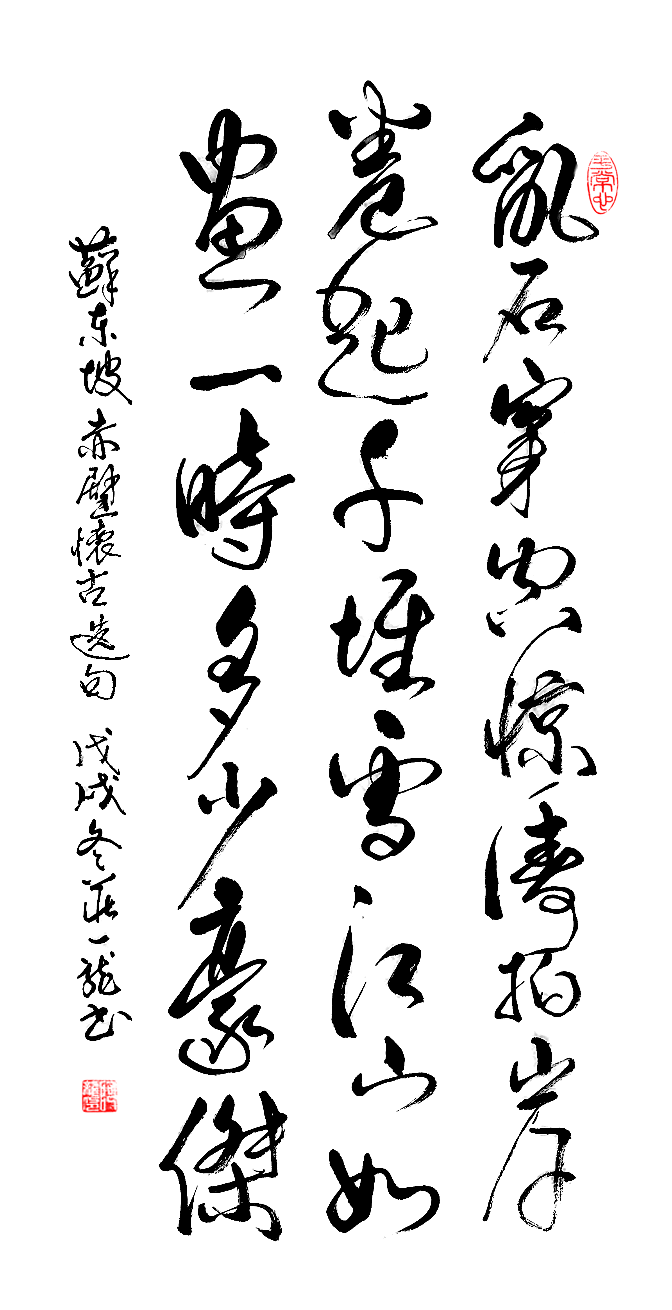 亂石穿空惊濤拍岸
卷起千堆雪江山如
畫一時多少豪傑
蘇东坡赤壁懷古选句 戊戌冬莊一龍书